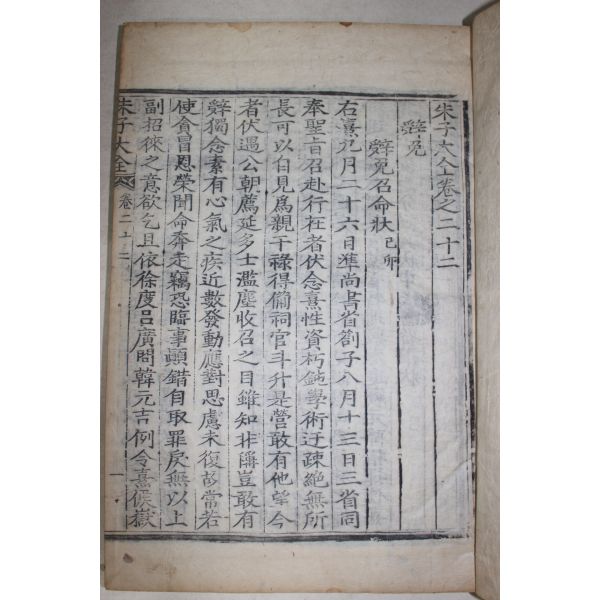 朱子大全卷之二十二
辭免
辭免召命狀己卯
右熹九月二十六日準尚書省劄子八月十三日三省同
奉聖旨召赴行在者伏念熹性資朽鈍學術迂疎絶無所
長可以自見爲親干祿得備祠官斗升是營敢有他望今
者伏遇公朝薦延多士濫塵收召之目雖知非稱豈敢有
辭獨念素有心氣之疾近數發動應對思慮未復故常若
使貪冒恩榮聞命奔走竊恐臨事顚錯自取罪戾無以上
副招徠之意欲乞且依徐度呂廣問韓元吉例令熹候嶽
朱子大全 卷二十二 一